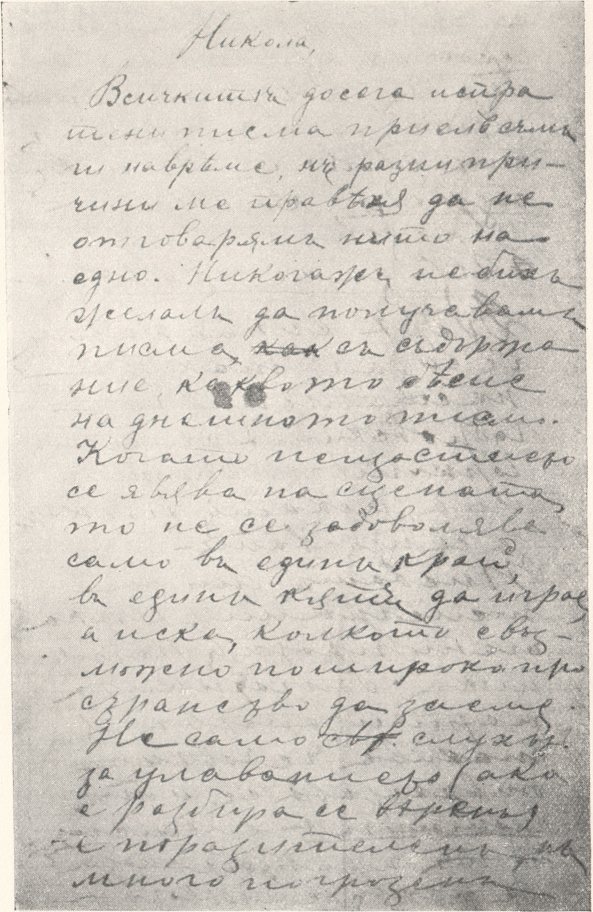 Никола,
Всичкитѣ досега испра
тени писма приемвамъ
ги навръме, нъ разни при-
чини ме правѣхѫ да не
отговарямъ нито на
едно. Никогажъ не бихъ
желалъ да получавамъ
писма, как съ съдържа
ние, каквото бѣше
на днешното писмо.
Когато нещастието
се явява на сцената,
то не се задоволява
само въ единъ край,
въ единъ кѫтъ да играе,
а иска, колкото е въз-
можно пошироко про
странство да заеме.
Не само слухъ
за улавянието (ако
е разбира се вѣренъ)
е поразителенъ, нъ
много погрозенъ